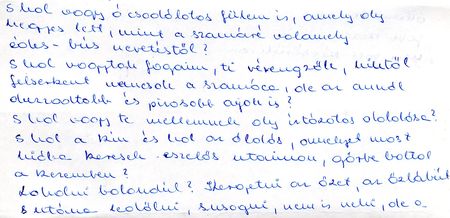 s hol vagy ó csodálatos fülem is, amely oly
hegyes lett, mint a szamáré valamely
édes-bús nevetéstől?
S hol vagytok fogaim, ti vérengzők, kiktől
felserkent nemcsak a szamóca, de az annál
duzzadtabb és pirosabb ajak is?
S hol vagy te mellemnek oly iszonyatos oldódása?
S hol a kín és hol az oldás, amelyet most
hiába keresek eszelős utaimon, görbe bottal
a kezemben?
Loholni bolondul? Kergetni az őzet, az őzlábút
s utána ledőlni, susogni, nem is neki, de a